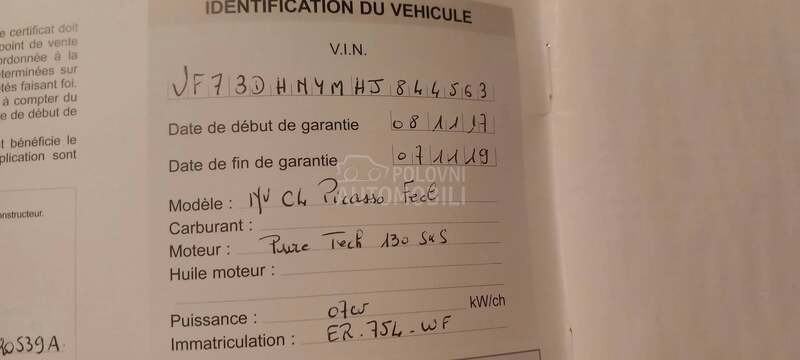 e certificat doit
point de vente
ordonnée à la
terminées sur
tés faisant foi.
à compter du
e de début de
t bénéficie le
plication sont
onstructeur.
20539A
IDENTIFICATION DU VEHICULE
V.I.N.
VF73DHNYMHJ844563
Date de début de garantie 081117
Date de fin de garantie 071119
POLOVNI
AUTOMOBILI
Modèle : NV C4 Picasso Feel
Carburant :
Moteur : Pure Tech 130 S&S
Huile moteur :
Puissance : 07cv kW/ch
Immatriculation : ER-754-WF